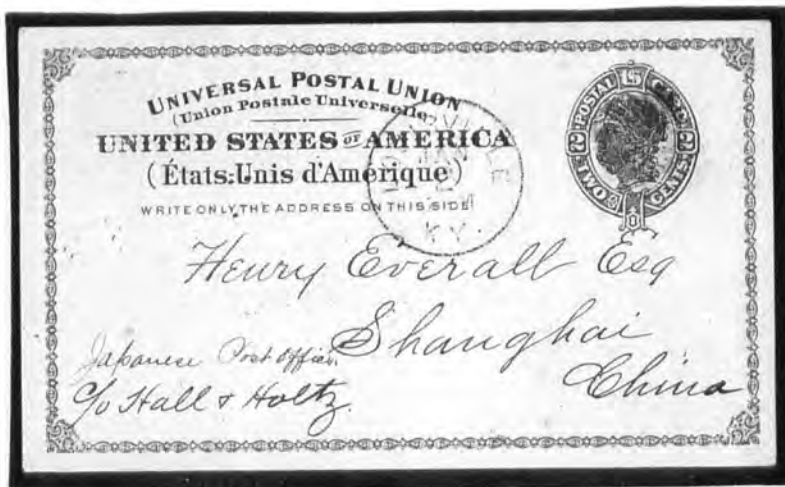 UNIVERSAL POSTAL UNION
(Union Postale Universelle)
UNITED STATES OF AMERICA
(États-Unis d'Amérique)
WRITE ONLY THE ADDRESS ON THIS SIDE
POSTAL CARD
2 TWO CENTS 2
KY.
Henry Everall Esq
Shanghai
China
Japanese Post Office.
c/o Hall & Holtz.